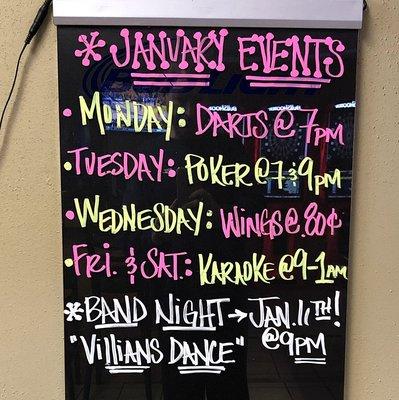 * JANUARY EVENTS
• MONDAY: DARTS @ 7PM
• TUESDAY: POKER @ 7 & 9PM
• WEDNESDAY: WINGS @ .80¢
• FRI. & SAT: KARAOKE @ 9-1AM
* BAND NIGHT → JAN. 11TH!
@ 9PM
"VILLIANS DANCE"